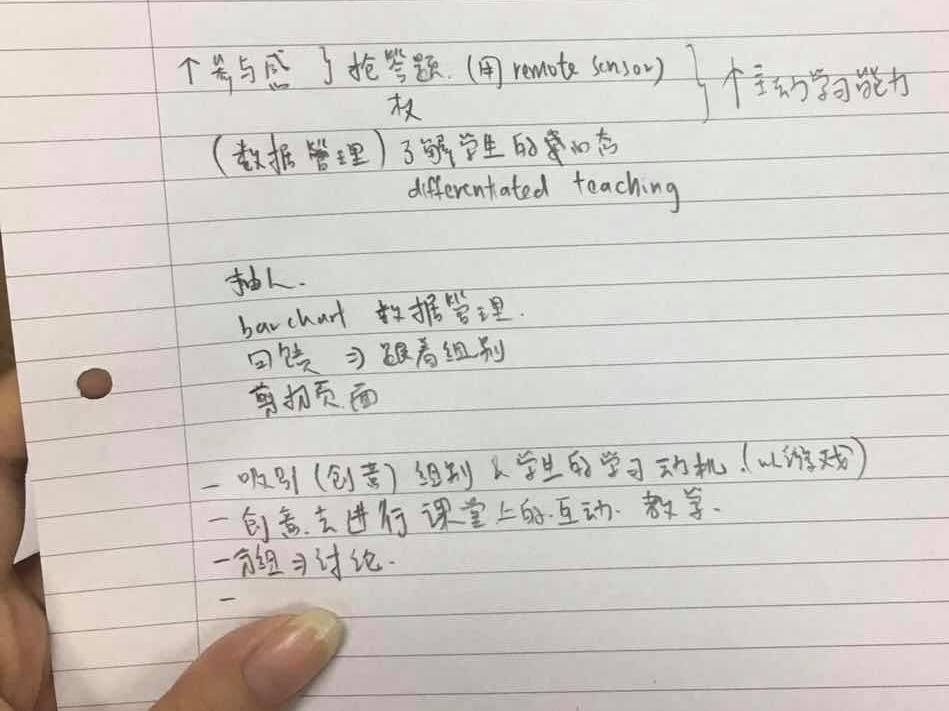 ↑参与感 } 抢答题. (用 remote sensor) } ↑主动学习能力
权
(数据管理) 了解学生的 状态
differentiated teaching
抽人.
bar chart 数据管理.
回馈 ⇒ 跟着组别
剪切页面
- 吸引 (创意) 组别 & 学生的学习动机! (以游戏)
- 创意去进行课堂上的互动. 教学.
- 分组 ⇒ 讨论.
-